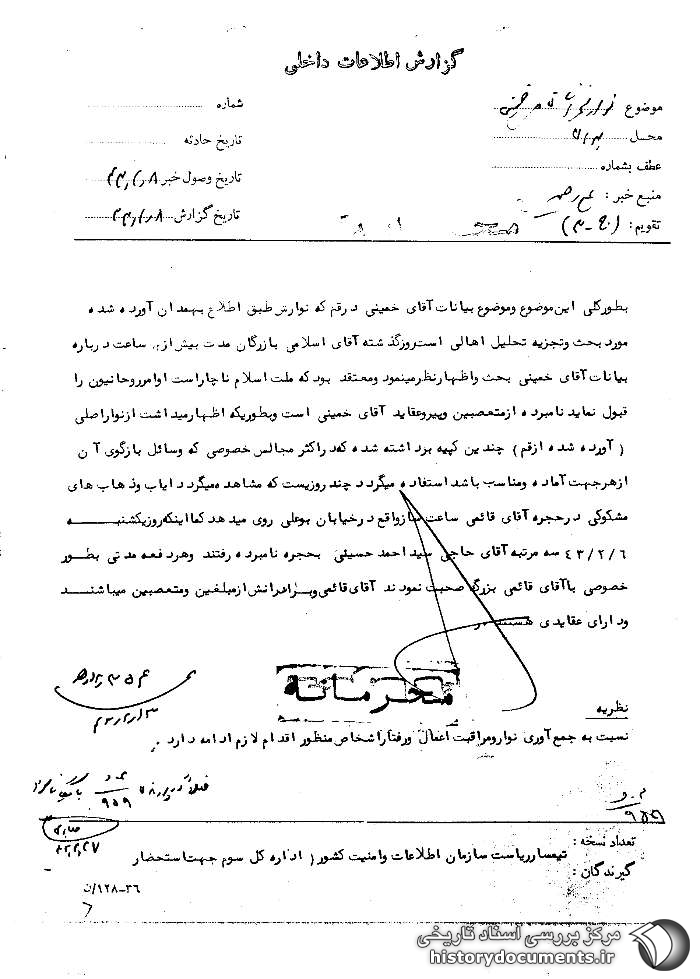 گزارش اطلاعات داخلی
موضوع
شماره
محل
تاریخ حادثه
عطف بشماره
تاریخ وصول خبر
منبع خبر :
تاریخ گزارش
تقویم : (ب-۳)
بطورکلی این موضوع وموضوع بیانات آقای خمینی درقم که نوارش طبق اطلاع بهمدان آورده شده
مورد بحث وتجزیه تحلیل اهالی است روزگذشته آقای اسلامی بازرگان مدت بیش از ساعت درباره
بیانات آقای خمینی بحث واظهارنظرمینمود ومعتقد بود که ملت اسلام ناچاراست اوامرروحانیون را
قبول نماید نامبرده ازمتعصبین وپیروعقاید آقای خمینی است وبطوریکه اظهارمیداشت ازنواراصلی
( آورده شده ازقم ) چندین کپیه برداشته شده که دراکثر مجالس خصوصی که وسائل بازگوی آن
ازهرجهت آماده ومناسب باشد استفاده میگردد چند روزیست که مشاهده میگردد ایاب وذهاب های
مشکوکی درحجره آقای قائمی ساعت ساز واقع درخیابان بوعلی روی میدهد کمااینکه روزیکشنبه
۴۳/۲/۶ سه مرتبه آقای حاجی سید احمد حسینی بحجره نامبرده رفتند وهردفعه مدتی بطور
خصوصی باآقای قائمی بزرگ صحبت نمودند آقای قائمی وبرادرانش ازمبلغین ومتعصبین میباشند
ودارای عقایدی هستند
محرمانه
نظریه
نسبت به جمع آوری نوارومراقبت اعمال ورفتاراشخاص منظور اقدام لازم ادامه دارد .
۹۵۹
۹۵۹
تعداد نسخه :
تیمسارریاست سازمان اطلاعات وامنیت کشور ( اداره کل سوم جهت استحضار
گیرندگان :
۳۶-۱۲۸/ن
مرکز بررسی اسناد تاریخی
historydocuments.ir